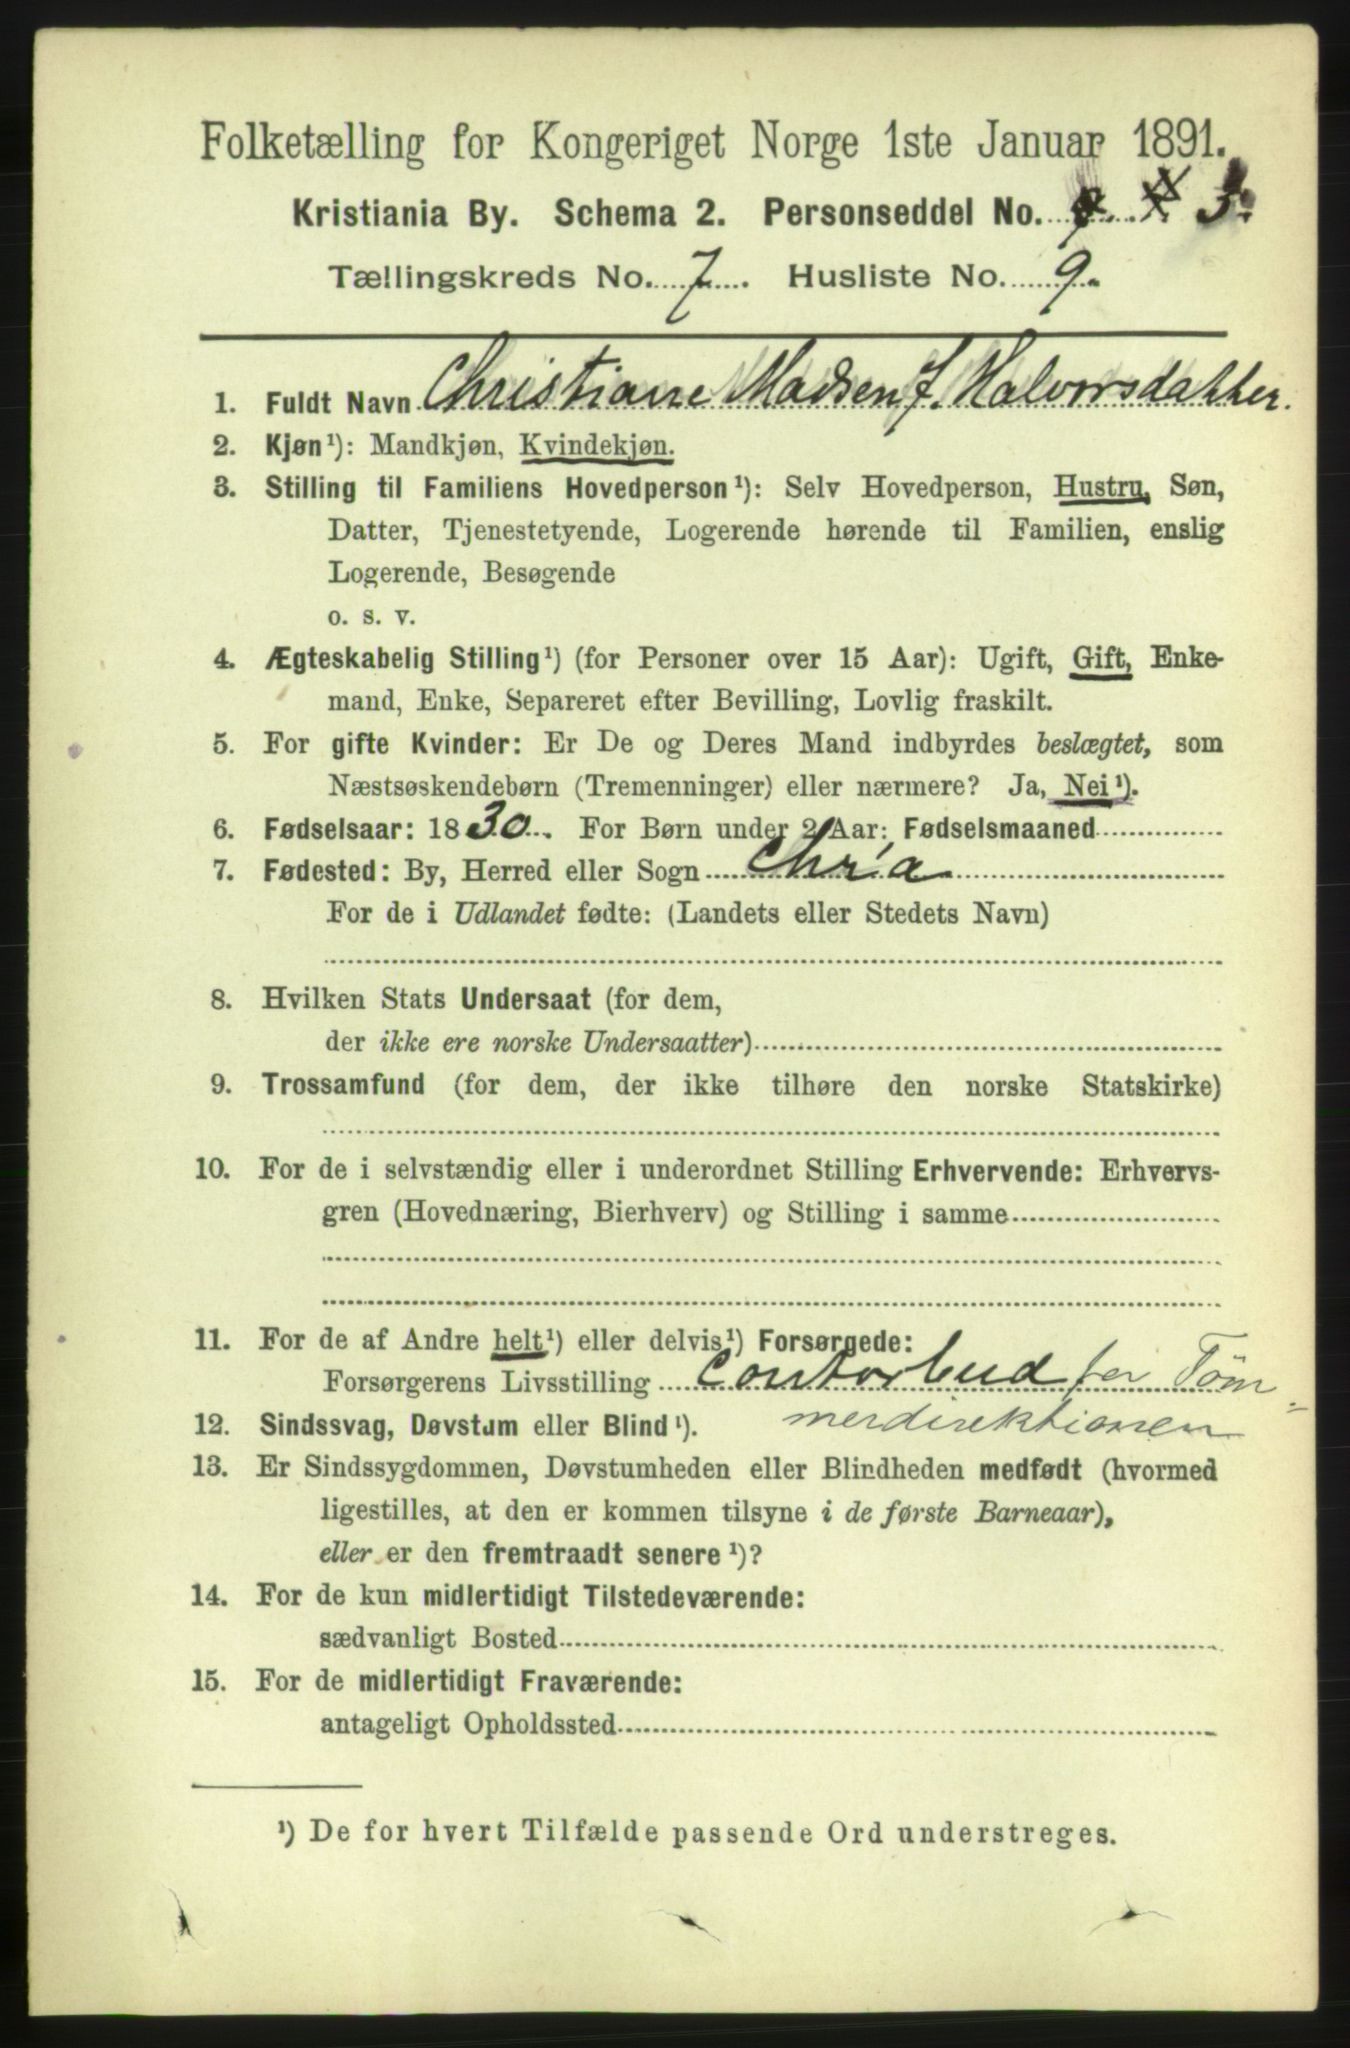 Folketælling for Kongeriget Norge 1ste Januar 1891.
Kristiania By. Schema 2. Personseddel No. 3.
Tællingskreds No. 7. Husliste No. 9.
1. Fuldt Navn Christiane Madsen f. Halvorsdatter.
2. Kjøn¹): Mandkjøn, Kvindekjøn.
3. Stilling til Familiens Hovedperson¹): Selv Hovedperson, Hustru, Søn,
Datter, Tjenestetyende, Logerende hørende til Familien, enslig
Logerende, Besøgende
o. s. v.
4. Ægteskabelig Stilling¹) (for Personer over 15 Aar): Ugift, Gift, Enke-
mand, Enke, Separeret efter Bevilling, Lovlig fraskilt.
5. For gifte Kvinder: Er De og Deres Mand indbyrdes beslægtet, som
Næstsøskendebørn (Tremenninger) eller nærmere? Ja, Nei¹).
6. Fødselsaar: 1830. For Børn under 2 Aar: Fødselsmaaned
7. Fødested: By, Herred eller Sogn Chr'a
For de i Udlandet fødte: (Landets eller Stedets Navn)
8. Hvilken Stats Undersaat (for dem,
der ikke ere norske Undersaatter)
9. Trossamfund (for dem, der ikke tilhøre den norske Statskirke)
10. For de i selvstændig eller i underordnet Stilling Erhvervende: Erhvervs-
gren (Hovednæring, Bierhverv) og Stilling i samme
11. For de af Andre helt¹) eller delvis¹) Forsørgede:
Forsørgerens Livsstilling Contorbud for Töm-
merdirektionen
12. Sindssvag, Døvstum eller Blind¹).
13. Er Sindssygdommen, Døvstumheden eller Blindheden medfødt (hvormed
ligestilles, at den er kommen tilsyne i de første Barneaar),
eller er den fremtraadt senere¹)?
14. For de kun midlertidigt Tilstedeværende:
sædvanligt Bosted
15. For de midlertidigt Fraværende:
antageligt Opholdssted
¹) De for hvert Tilfælde passende Ord understreges.